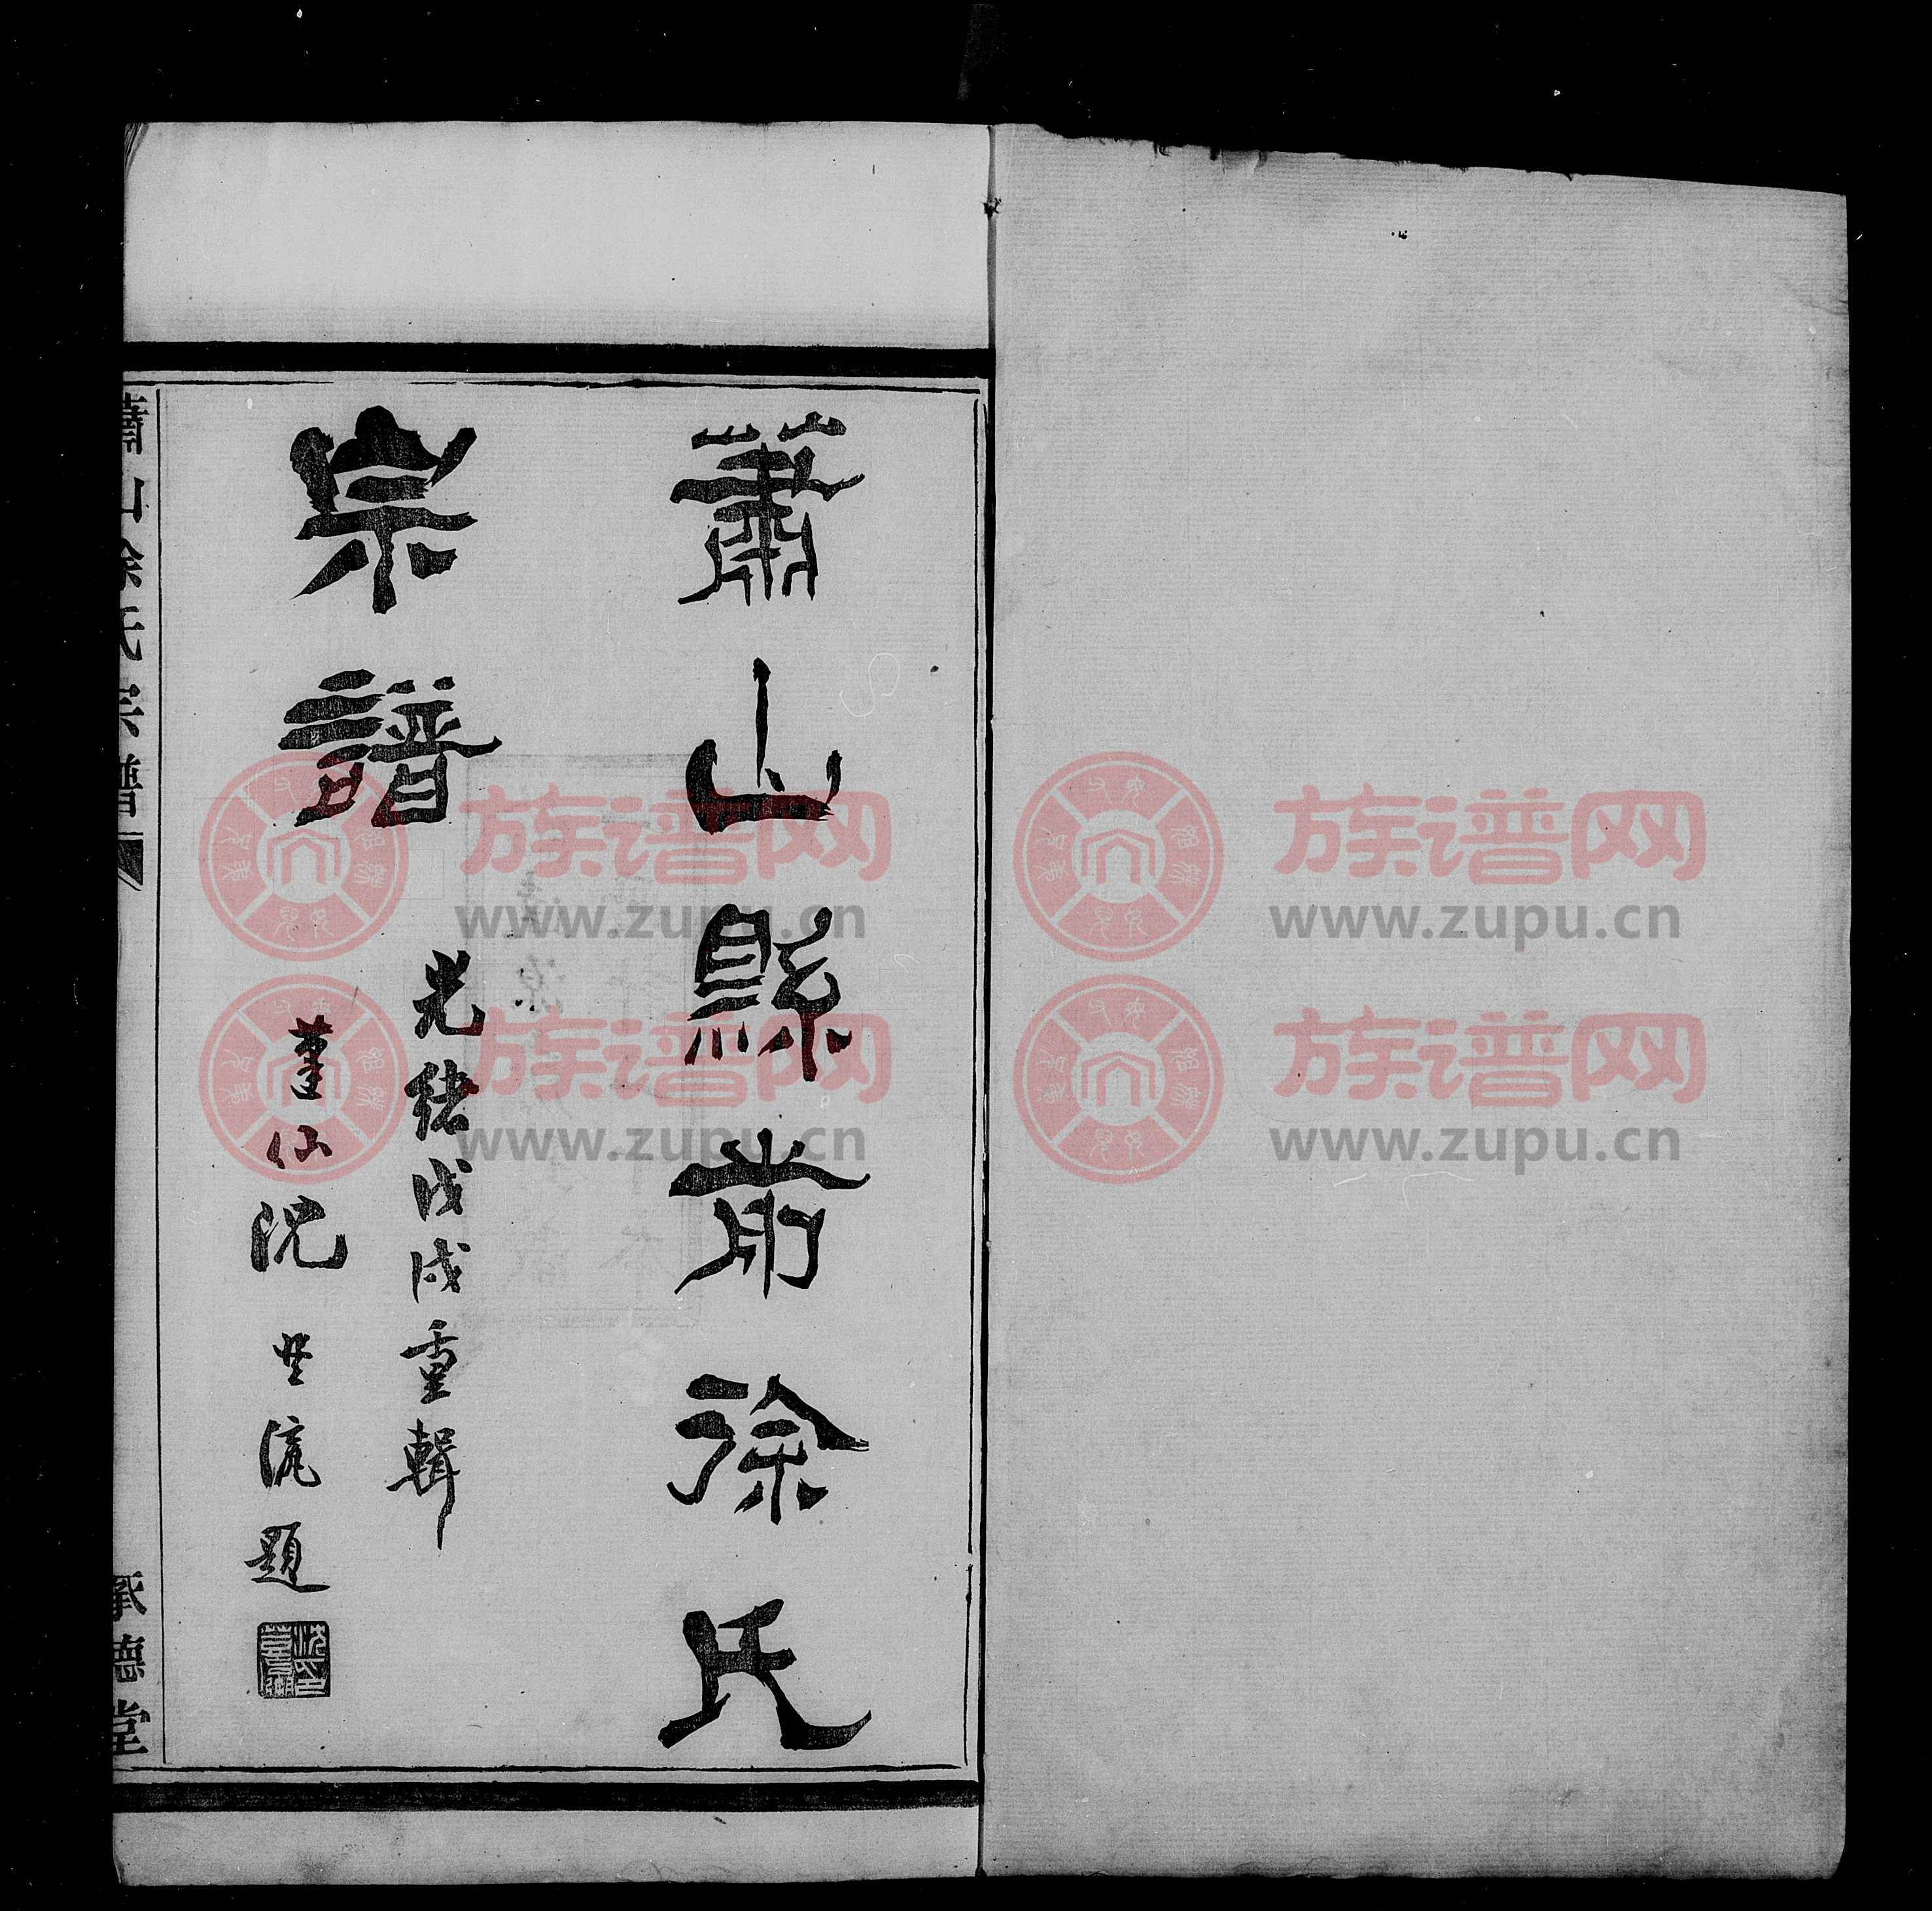 蕭山縣前徐氏
宗譜
光緒戊戌重輯
沈
題
蕭山徐氏宗譜
承德堂
族谱网
www.zupu.cn
族谱网
www.zupu.cn
族谱网
www.zupu.cn
族谱网
www.zupu.cn